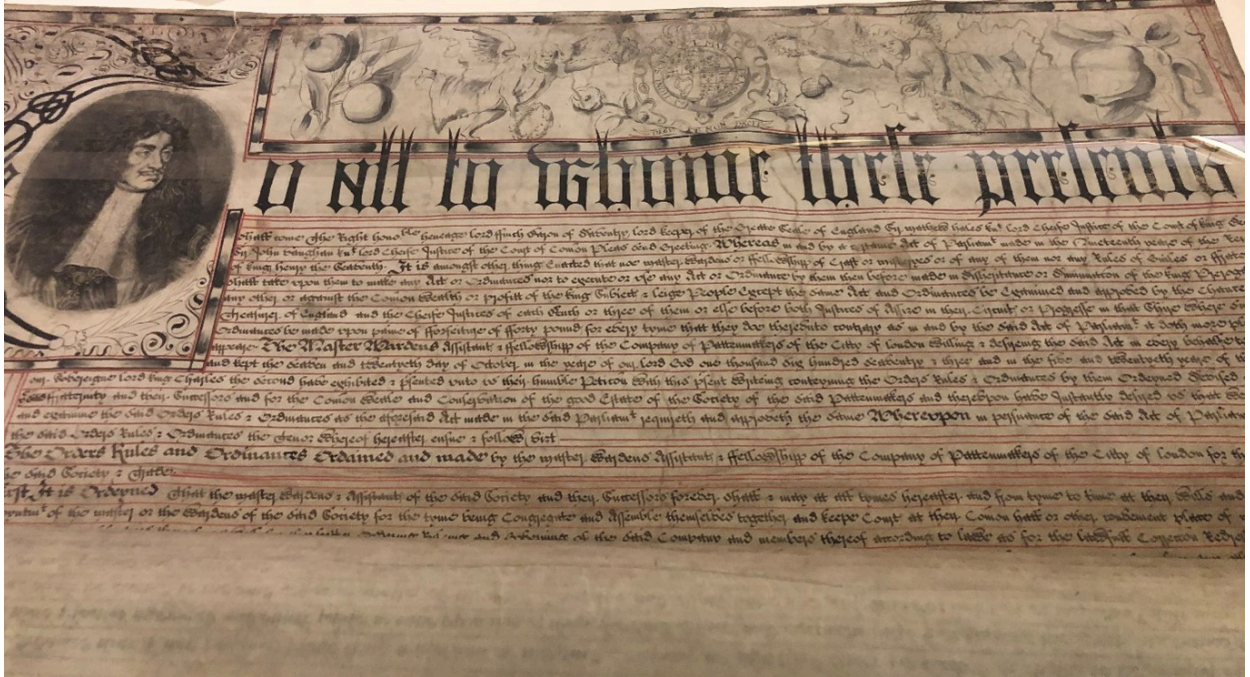 DIEU ET MON DROIT
o all to whome these presents
shall come The Right hono:ble heneage lord ffinch Baron of Daventry lord keeper of the Greate Seale of England Sr mathew hales kn:t lord Cheife Justice of the Court of kings
Sr John Vaughan kn:t lord Cheife Justice of the Court of Comon Pleas Send Greeting. Whereas in and by a Certaine Act of Parliam:t made in the Nineteenth yeare of the
of king henry the Seaventh It is amongst other things Enacted that noe master Wardens or ffellowshipp of Craft or misteryes or of any of them nor any Rulers of Guilds or
shall take upon them to make any Act or Ordinance nor to execute or use any Act or Ordinance by them then before made in disheritance or diminution of the king
any other or against the Comon Wealth or profitt of the king Subiects leige People Except the same Act and Ordinances be Examined and approved by the
Threasurer of England and the Cheife Justices of each Bench or three of them or else before both Justices of Assize in their Circuit or Progresse in that Shire where
Ordinances be made upon paine of fforfeiture of fforty pound for every tyme that they doe thereunto contrary as in and by the said Act of Parliam:t it doth more
appeare The Master Wardens Assistants & ffellowshipp of the Company of Pattenmakers of the Citty of london Willing & desireing the said Act in every
and kept the Seaven and twentyeth day of October in the yeare of our lord God one thousand six hundred seaventy & three and in the five and twentyeth yeare of
our Sovereigne lord king Charles the Second have exhibited & presented unto us their humble Peticon With this present Writeing conteyning the Orders Rules & Ordinances by them Ordeyned
ffraternity and their Successors and for the Comon Weale and Conservation of the good Estate of the Society of the said Pattenmakers and thereupon have Instantly desired us that
and examine the said Orders Rules & Ordinances as the aforesaid Act made in the said Parliam:t requireth and approveth the same Whereupon in persuance of the said Act of
the said Orders Rules & Ordinances the tenor Whereof hereafter ensue & follow vizt
The Orders Rules and Ordinances Ordained and made by the master Wardens Assistants & ffellowshipp of the Company of Pattenmakers of the Citty of london for
said Society &
It is Ordeyned That the master Wardens & Assistants of the said Society and their Successors forever shall & may at all tymes hereafter and from tyme to time at their Wills and
of the master or the Wardens of the said Society for the tyme being Congregate and Assemble themselves together and keepe Court at their Comon hall or other convenient place
and of the said Company and members thereof according to lawe as for the lawfull